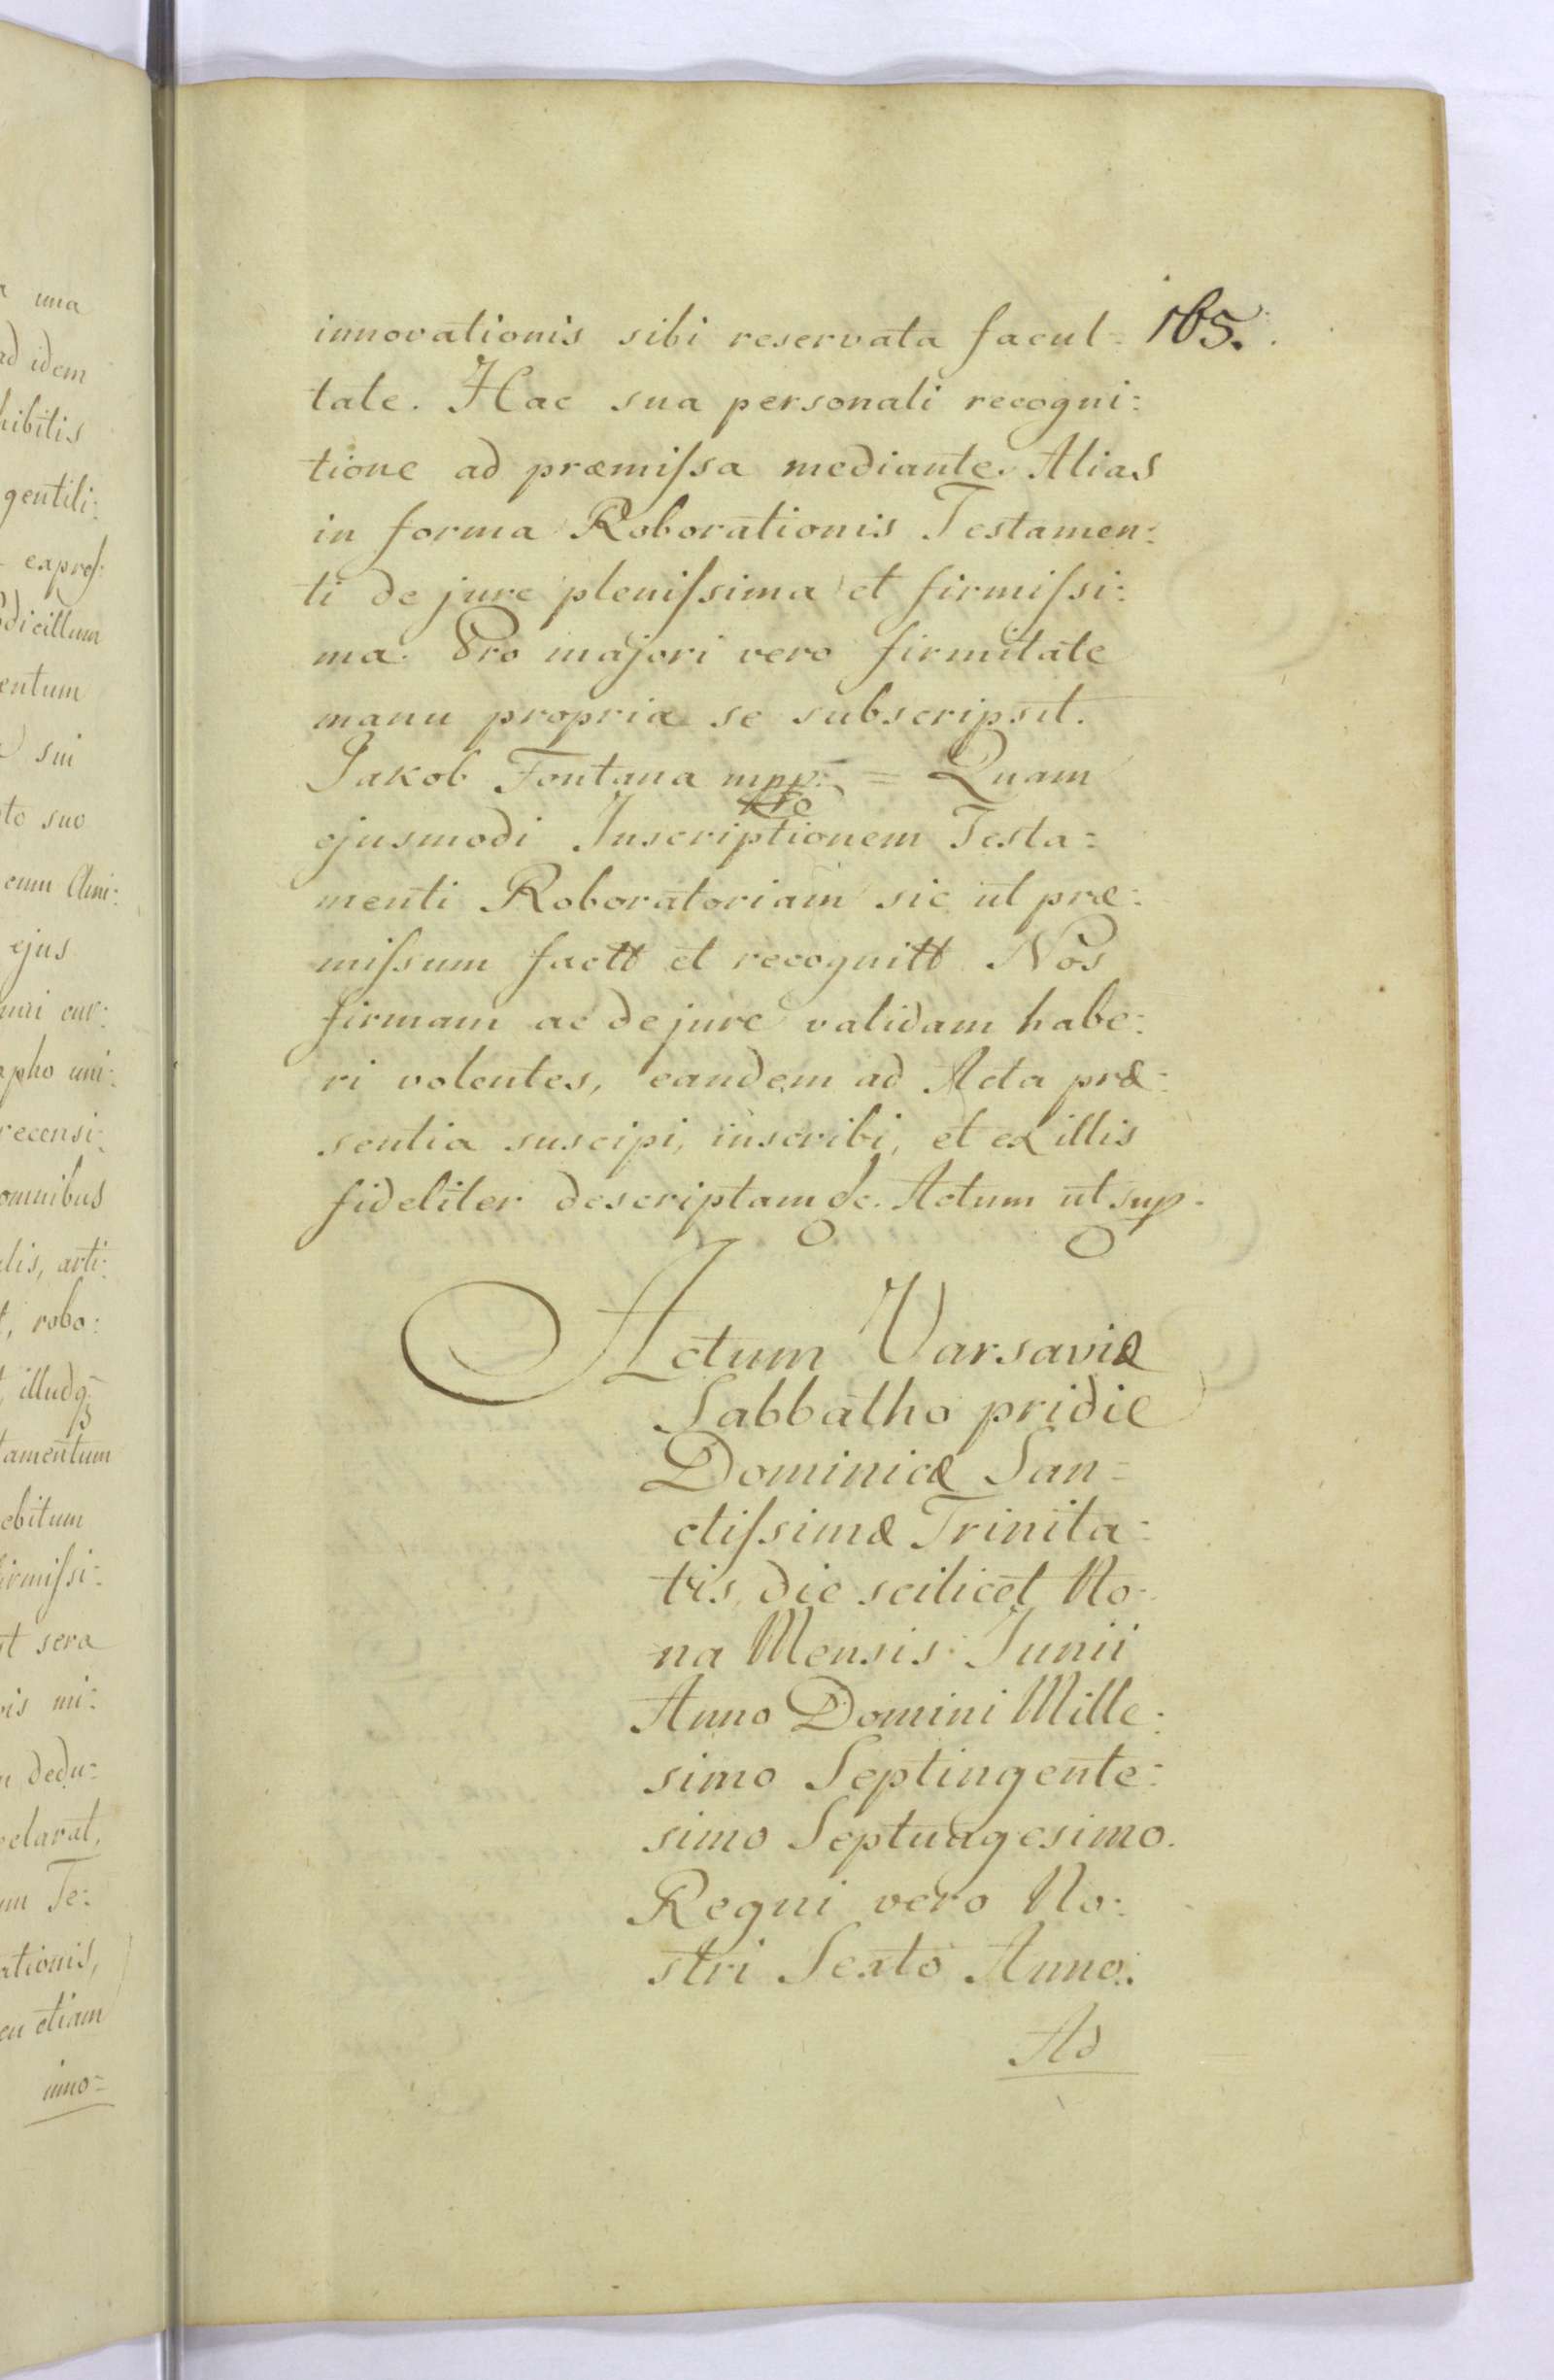 una
ad idem
hibitis
gentili:
expres:
dicillum
entum
sui
to suo
cum Ani:
ejus
apho uni:
recensi:
omnibus
lis, arti:
t, robo:
illudq;
tamentum
ebitum
firmissi:
st sera
mi:
dedu:
clarat,
um Te:
ationis,
eu etiam
inno=
165.
innovationis sibi reservata facul=
tate. Hac sua personali recogni:
tione ad præmissa mediante. Alias
in forma Roborationis Testamen:
ti de jure plenissima et firmissi:
ma. Pro majori vero firmitate
manu propria se subscripsit.
Jakob Fontana mpp: = Quam
ejusmodi Inscriptionem Testa=
menti Roboratoriam sic ut præ:
missum factt et recognitt Nos
firmam ac de jure validam habe:
ri volentes, eandem ad Acta præ:
sentia suscipi, inscribi, et ex illis
fideliter descriptam &c. Actum ut sup.
Actum Varsaviæ
Sabbatho pridie
Dominicæ San=
ctissimæ Trinita:
tis, die scilicet No-
na Mensis Junii
Anno Domini Mille:
simo Septingente:
simo Septuagesimo.
Regni vero No:
stri Sexto Anno.
Ad